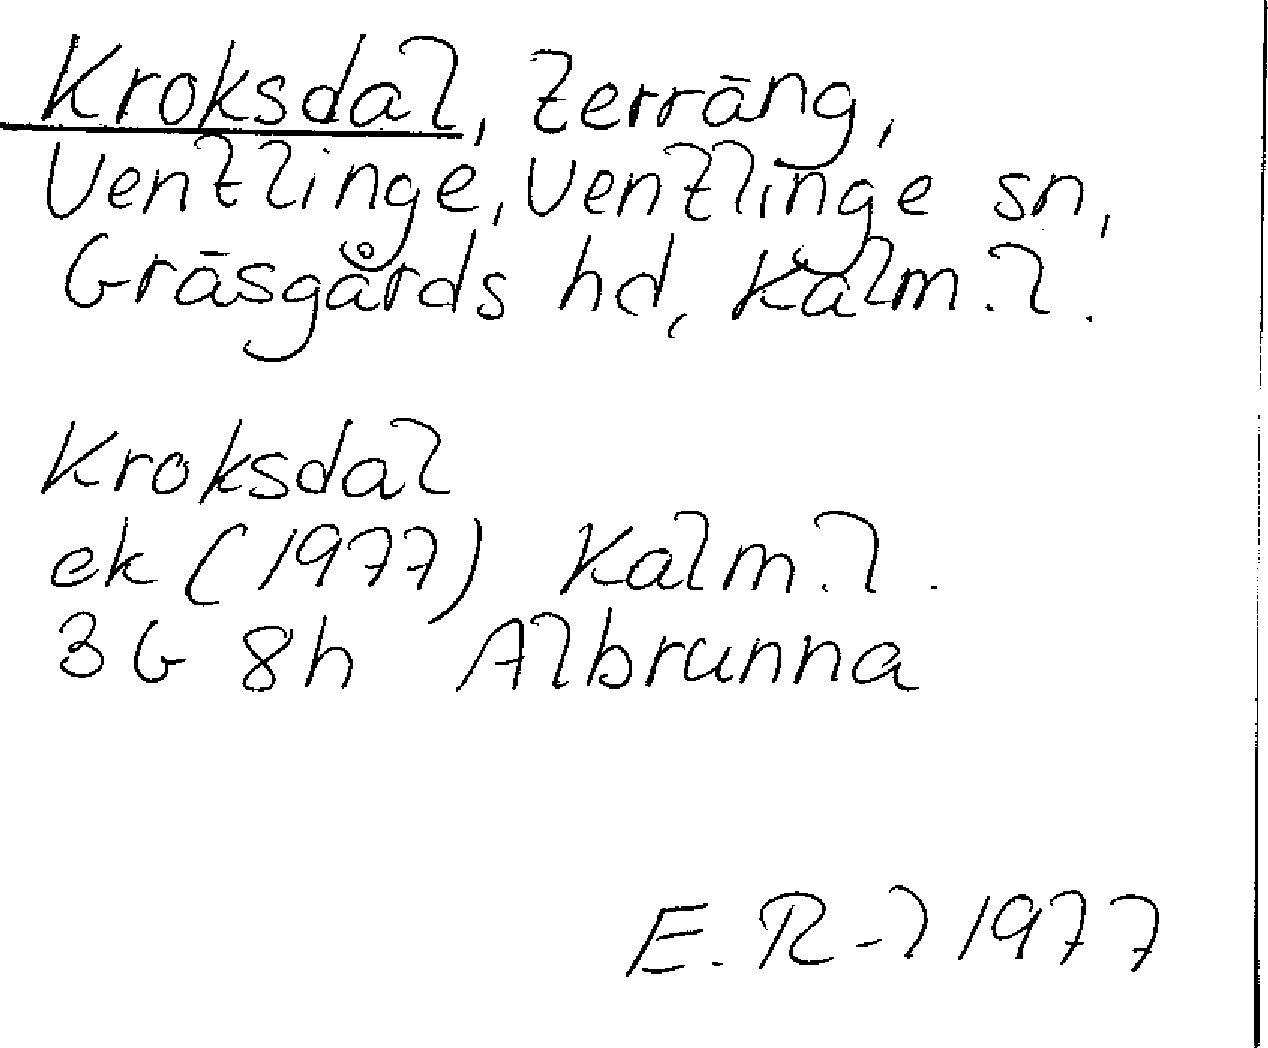 Kroksdal, terräng,
Ventlinge, Ventlinge sn,
Gräsgårds hd, Kalm. l.
Kroksdal
ek (1977) Kalm. l.
3G 8h Albrunna
E. R-l 1977